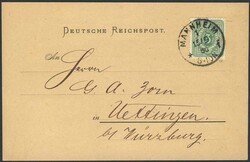 DEUTSCHE REICHSPOST.
MANNHEIM
An
Herrn
G. A. Zorn
in Uettingen
b/ Würzburg.